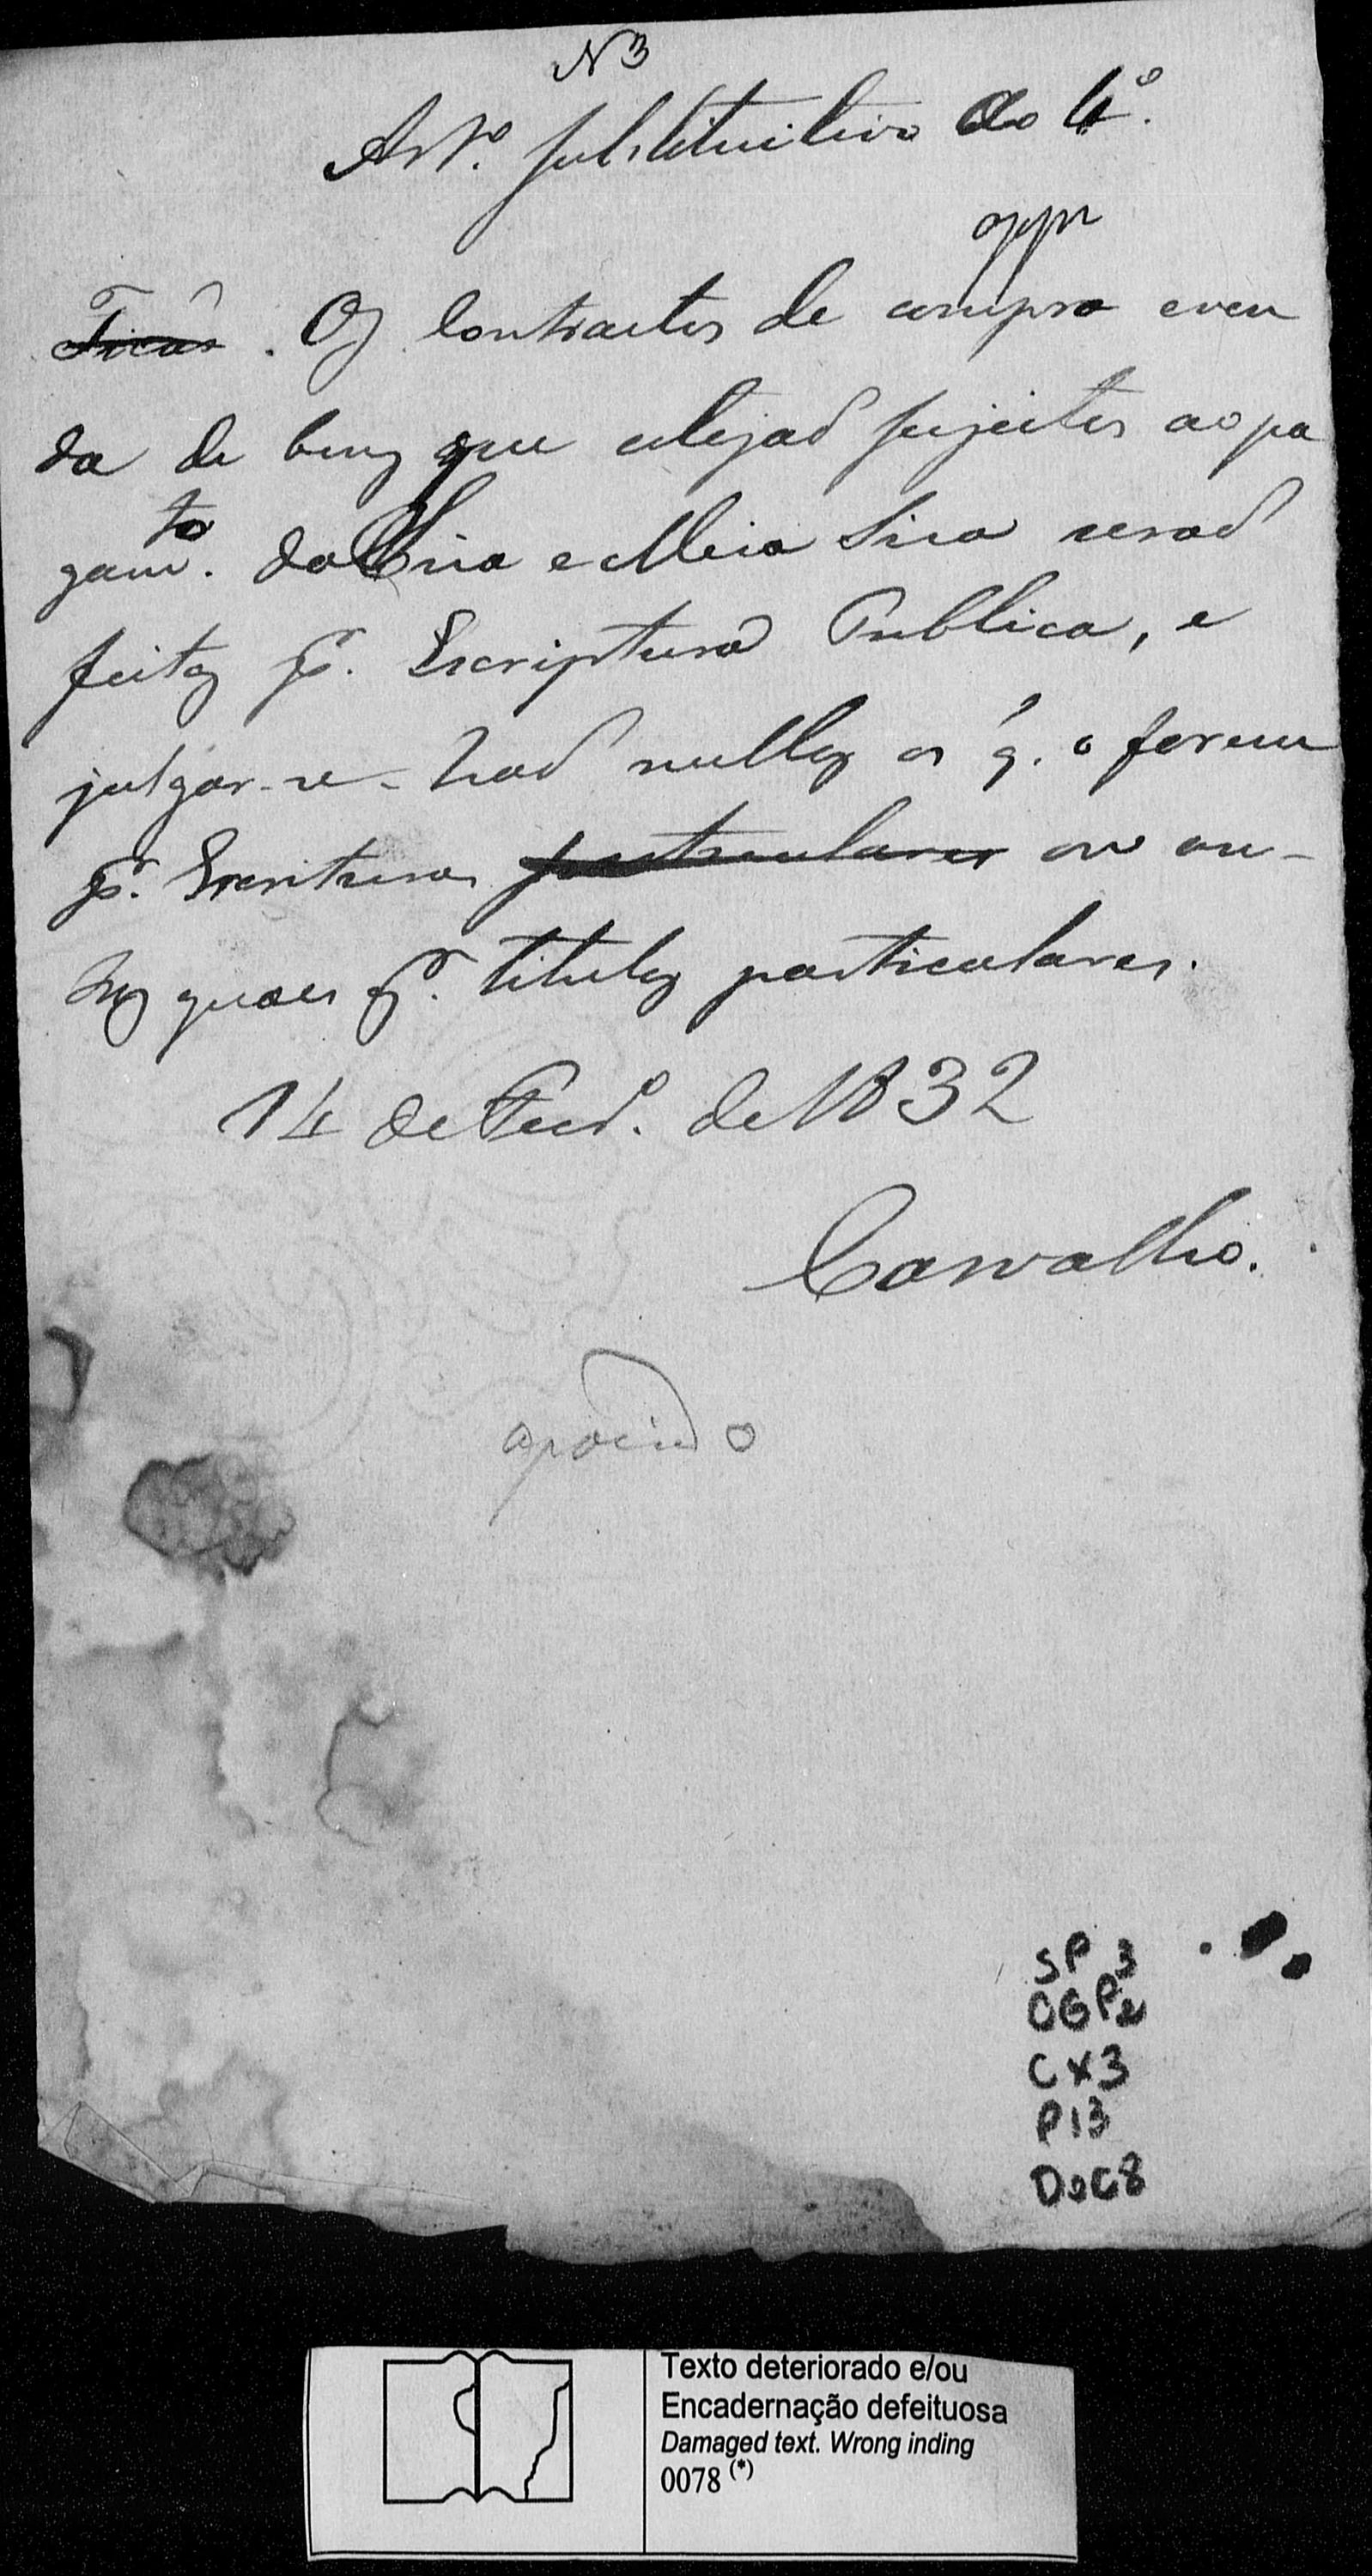 N 3
Artº. substituitivo ao 4º.
appr
Ficaõ. Os Contractos de compra e ven
da de bens que estejaõ sujeitos ao pa
gamto. da Siza e Meia Siza seraõ
feitos pr. Escriptura Publica, e
julgar-se-haõ nullos os q. o forem
pr. Escrituras particulares ou ou-
tros quaes qr. titulos particulares.
14 de Fevº. de 1832
Carvalho.
apoiado
SP 3
CGP2
CX3
P13
Doc8
Texto deteriorado e/ou
Encadernação defeituosa
Damaged text. Wrong inding
0078 (*)